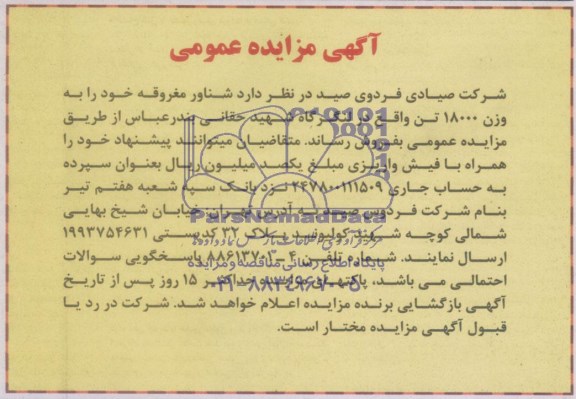 آگهی مزایده عمومی
شرکت صیادی فردوی صید در نظر دارد شناور مغروقه خود را به
وزن ۱۸۰۰۰ تن واقع در لنگرگاه شهید حقانی بندرعباس از طریق
مزایده عمومی بفروش رساند. متقاضیان میتوانند پیشنهاد خود را
همراه با فیش واریزی مبلغ یکصد میلیون ریال بعنوان سپرده
به حساب جاری ۲۴۷۸۰۰۱۱۱۵۰۹ نزد بانک سپه شعبه هفتم تیر
بنام شرکت فردوس صید به آدرس تهران خیابان شیخ بهایی
شمالی کوچه شوند کولیوند پلاک ۳۲ کدپستی ۱۹۹۳۷۵۴۶۳۱
ارسال نمایند. شماره تلفن ۴ - ۸۸۶۱۳۷۰۳ پاسخگویی سوالات
احتمالی می باشد، پاکتهای حداکثر ۱۵ روز پس از تاریخ
آگهی بازگشایی برنده مزایده اعلام خواهد شد. شرکت در رد یا
قبول آگهی مزایده مختار است.
ParsNamadData
پایگاه اطلاع رسانی مناقصه و مزایده
۰۲۱-۸۸۳۴۹۶۷۰-۵